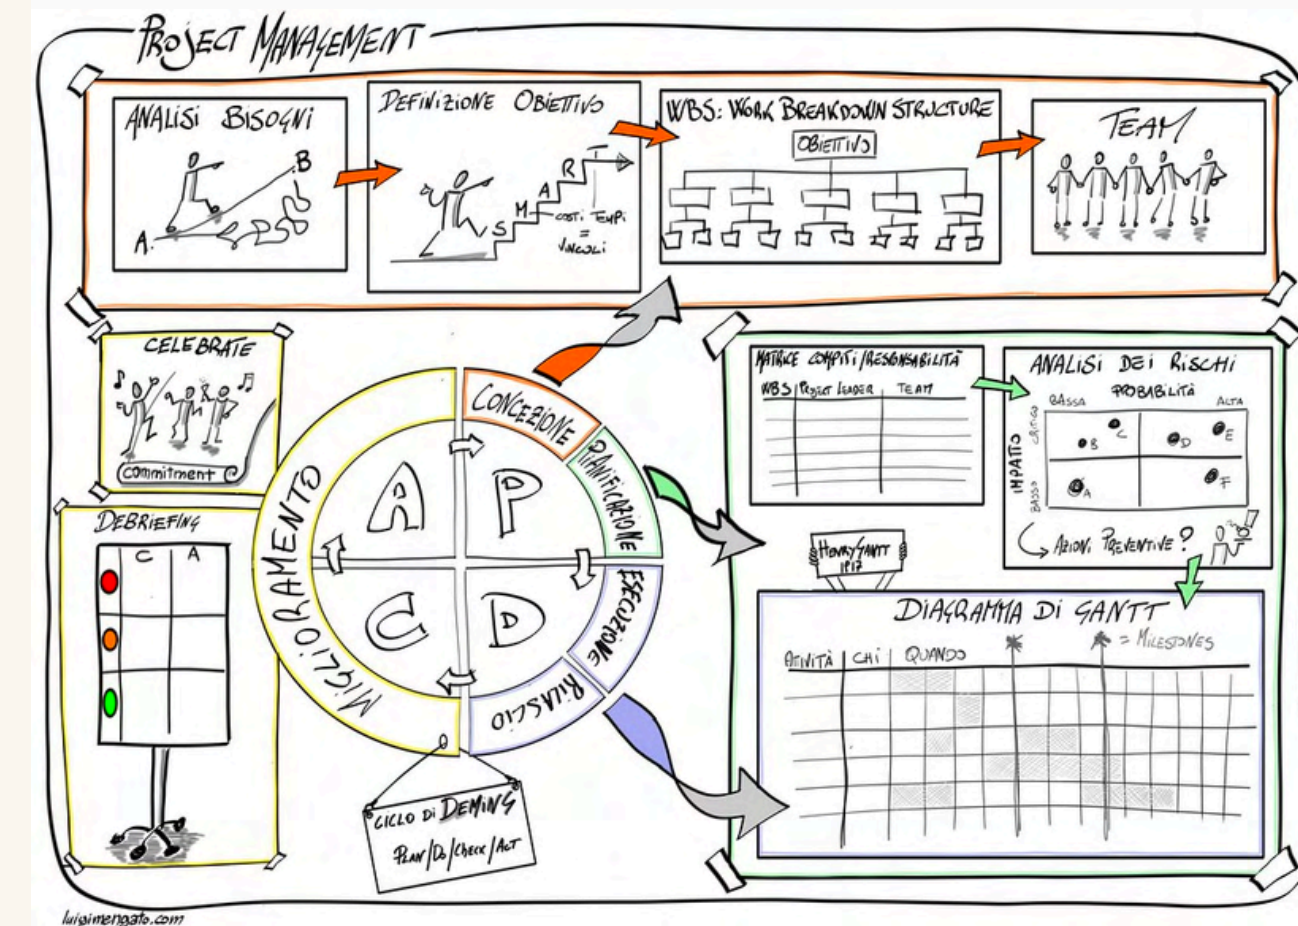 PROJECT MANAGEMENT
ANALISI BISOGNI
A.
.B
DEFINIZIONE OBIETTIVO
S
M
A
R
T
COSTI TEMPI
=
VINCOLI
WBS: WORK BREAKDOWN STRUCTURE
OBIETTIVO
TEAM
CELEBRATE
commitment
DEBRIEFING
C A
CONCEZIONE
PIANIFICAZIONE
ESECUZIONE
RILASCIO
MIGLIORAMENTO
A P
C D
CICLO DI DEMING
PLAN/DO/CHECK/ACT
MATRICE COMPITI/RESPONSABILITÀ
WBS PROJECT LEADER TEAM
ANALISI DEI RISCHI
PROBABILITÀ
BASSA ALTA
IMPATTO
CRITICO
BASSO
B
C
D
E
A
F
AZIONI PREVENTIVE?
HENRY GANTT
1917
DIAGRAMMA DI GANTT
= MILESTONES
ATTIVITÀ CHI QUANDO
luigimengato.com